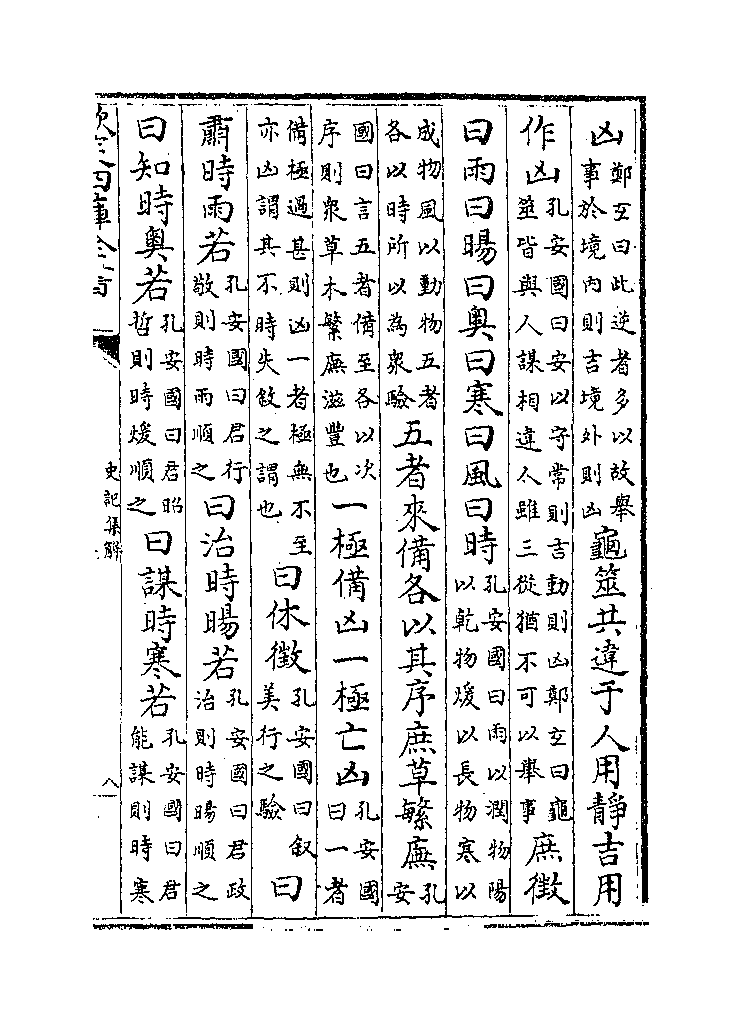 凶鄭玄曰此逆者多以故舉事於境内則吉境外則凶龜筮共違于人用靜吉用
作凶孔安國曰安以守常則吉動則凶鄭玄曰龜筮皆與人謀相違人雖三從猶不可以舉事庶徵
曰雨曰暘曰奥曰寒曰風曰時孔安國曰雨以潤物陽以乾物煖以長物寒以
成物風以動物五者各以時所以為衆驗五者來備各以其序庶草繁廡孔安
國曰言五者備至各以次序則衆草木繁廡滋豐也一極備凶一極亡凶孔安國曰一者
備極過甚則凶一者極無不至亦凶謂其不時失敘之謂也曰休徵孔安國曰叙美行之驗曰
肅時雨若孔安國曰君行敬則時雨順之曰治時暘若孔安國曰君政治則時暘順之
曰知時奥若孔安國曰君昭哲則時煖順之曰謀時寒若孔安國曰君能謀則時寒
欽定四庫全書
史記集解
八